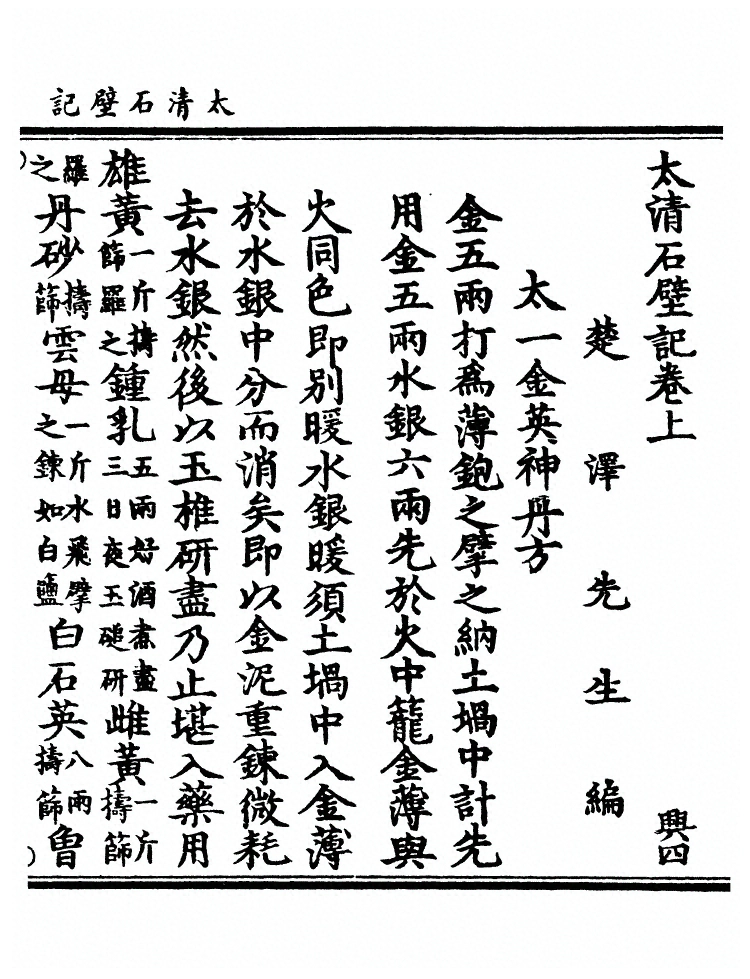 太清石壁記
太清石壁記卷上 興四
楚澤先生編
太一金英神丹方
金五兩打爲薄鉋之擘之納土堝中計先
用金五兩水銀六兩先於火中籠金薄與
火同色即別暖水銀暖須土堝中入金薄
於水銀中分而消矣即以金泥重鍊微耗
去水銀然後以玉椎研盡乃止堪入藥用
雄黃一斤擣篩羅之鍾乳五兩好酒煮盡三日夜玉槌研雌黃一斤擣篩
羅之丹砂擣篩雲母一斤水飛擘之鍊如白鹽白石英八兩擣篩曾